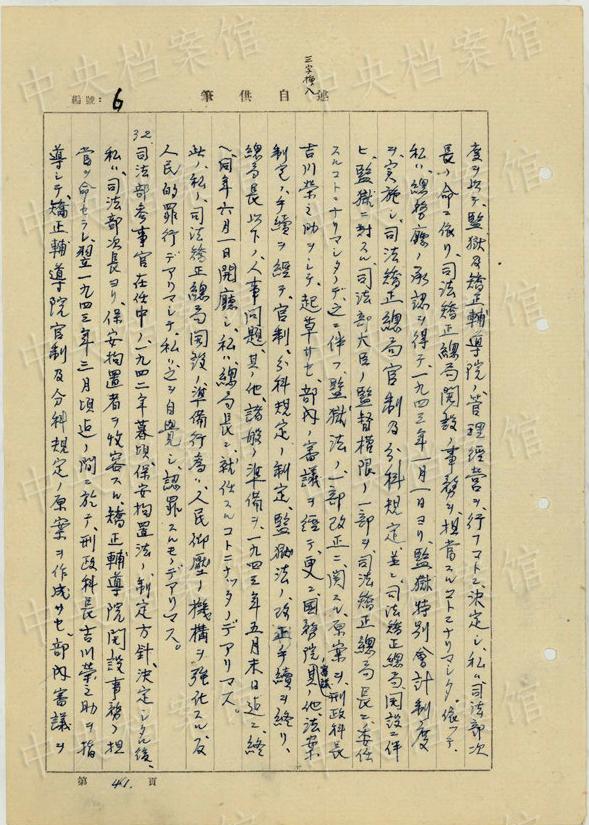 中央档案馆
編號：6
筆供自述
三字挿入
度ヲ以テ、監獄及矯正輔導院ノ管理経営ヲ行フコトニ決定シ、私ハ司法部次
長ノ命ニ依リ、司法矯正總局開設ノ事務ヲ担当スルコトニナリマシタ。依ッテ、
私ハ總務廳ノ承認ヲ得テ一九四三年一月一日ヨリ、監獄特別會計制度
ヲ実施シ、司法矯正總局官制及分科規定並ニ司法矯正總局開設ニ伴
ヒ、監獄ニ対スル司法部大臣ノ監督権限ノ一部ヲ、司法矯正總局長ニ委任
スルコトニナリマシタノデ、之ニ伴フ監獄法ノ一部改正ニ関スル原案ヲ、刑政科長
吉川榮之助ヲシテ起草サセ、部内ノ審議ヲ経テ、更ニ國務院其ノ他法案
審議
制定ノ手續ヲ経テ、官制、分科規定ノ制定、監獄法ノ改正手續ヲ終リ、
總局長以下ノ人事問題其ノ他、諸般ノ準備ヲ一九四三年五月末日迄ニ終
ヘ同年六月一日開廳シ、私ハ總局長ニ就任スルコトニナッタノデアリマス。
此ノ私ノ司法矯正總局開設ノ準備行為ハ、人民仰壓ノ機構ヲ強化スル、反
人民的罪行デアリマシテ、私ハ之ヲ自覺シ、認罪スルモノデアリマス。
32 司法部参事官在任中ノ一九四二年暮頃、保安拘置法ノ制定方針決定シタル後、
私ハ、司法部次長ヨリ、保安拘置者ヲ收容スル、矯正輔導院開設事務ノ担
当ヲ命セラレ、翌一九四三年三月頃迄ノ間ニ於テ、刑政科長吉川榮之助ヲ指
導シテ、矯正輔導院官制及分科規定ノ原案ヲ作成サセ、部内審議ヲ
第 41. 頁